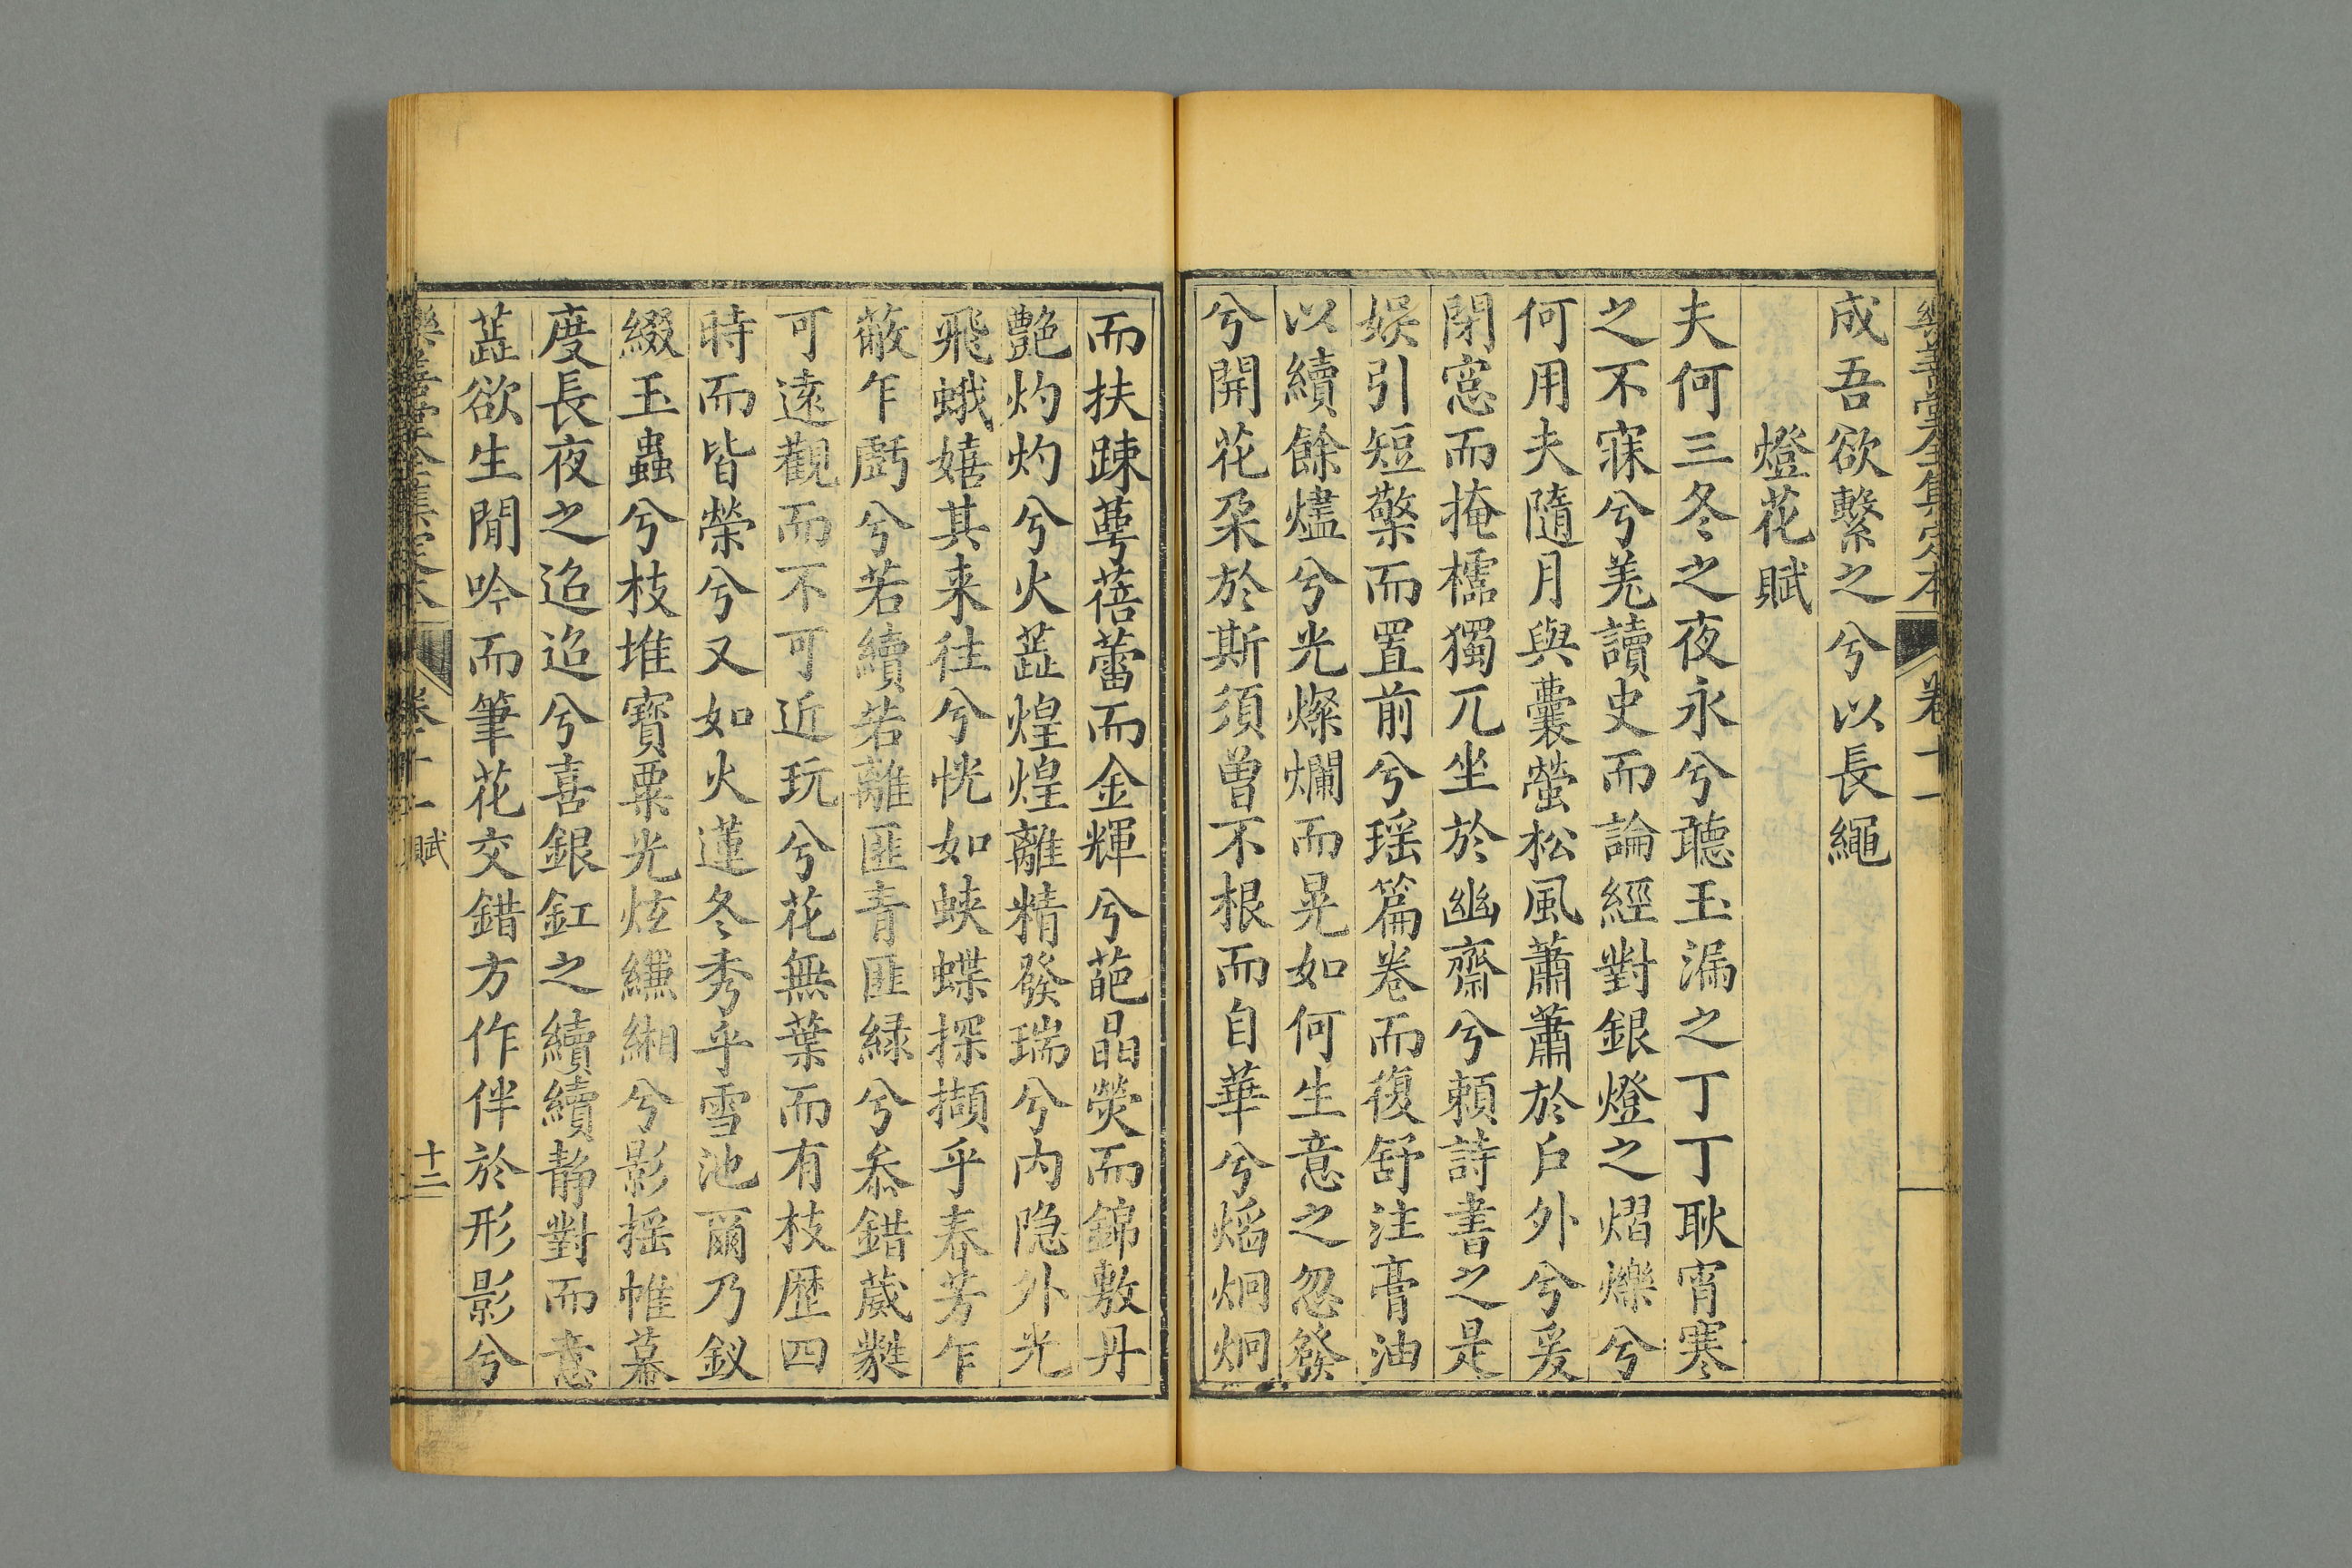 樂善堂全集定本 卷十一
成吾欲繫之兮以長繩
燈花賦
夫何三冬之夜永兮聽玉漏之丁丁耿宵寒
之不寐兮羌讀史而論經對銀燈之熠爍兮
何用夫隨月與囊螢松風蕭蕭於戶外兮爰
閉窓而掩櫺獨兀坐於幽齋兮賴詩書之是
娛引短檠而置前兮瑶篇卷而復舒注膏油
以續餘燼兮光燦爛而晃如何生意之忽發
兮開花朶於斯須曾不根而自華兮熖炯炯
而扶踈蕚蓓蕾而金輝兮葩晶熒而錦敷丹
艶灼灼兮火蘂煌煌離精發瑞兮内隐外光
飛蛾嬉其来往兮恍如蛺蝶探擷乎春芳乍
蔽乍虧兮若續若離匪青匪緑兮叅錯葳蕤
可遠觀而不可近玩兮花無葉而有枝歴四
時而皆榮兮又如火蓮冬秀乎雪池爾乃釵
綴玉蟲兮枝堆寳粟光炫纁緗兮影揺帷幕
度長夜之迢迢兮喜銀釭之續續静對而意
蘂欲生閒吟而筆花交錯方作伴於形影兮
樂善堂全集定本 卷十一 賦 十二